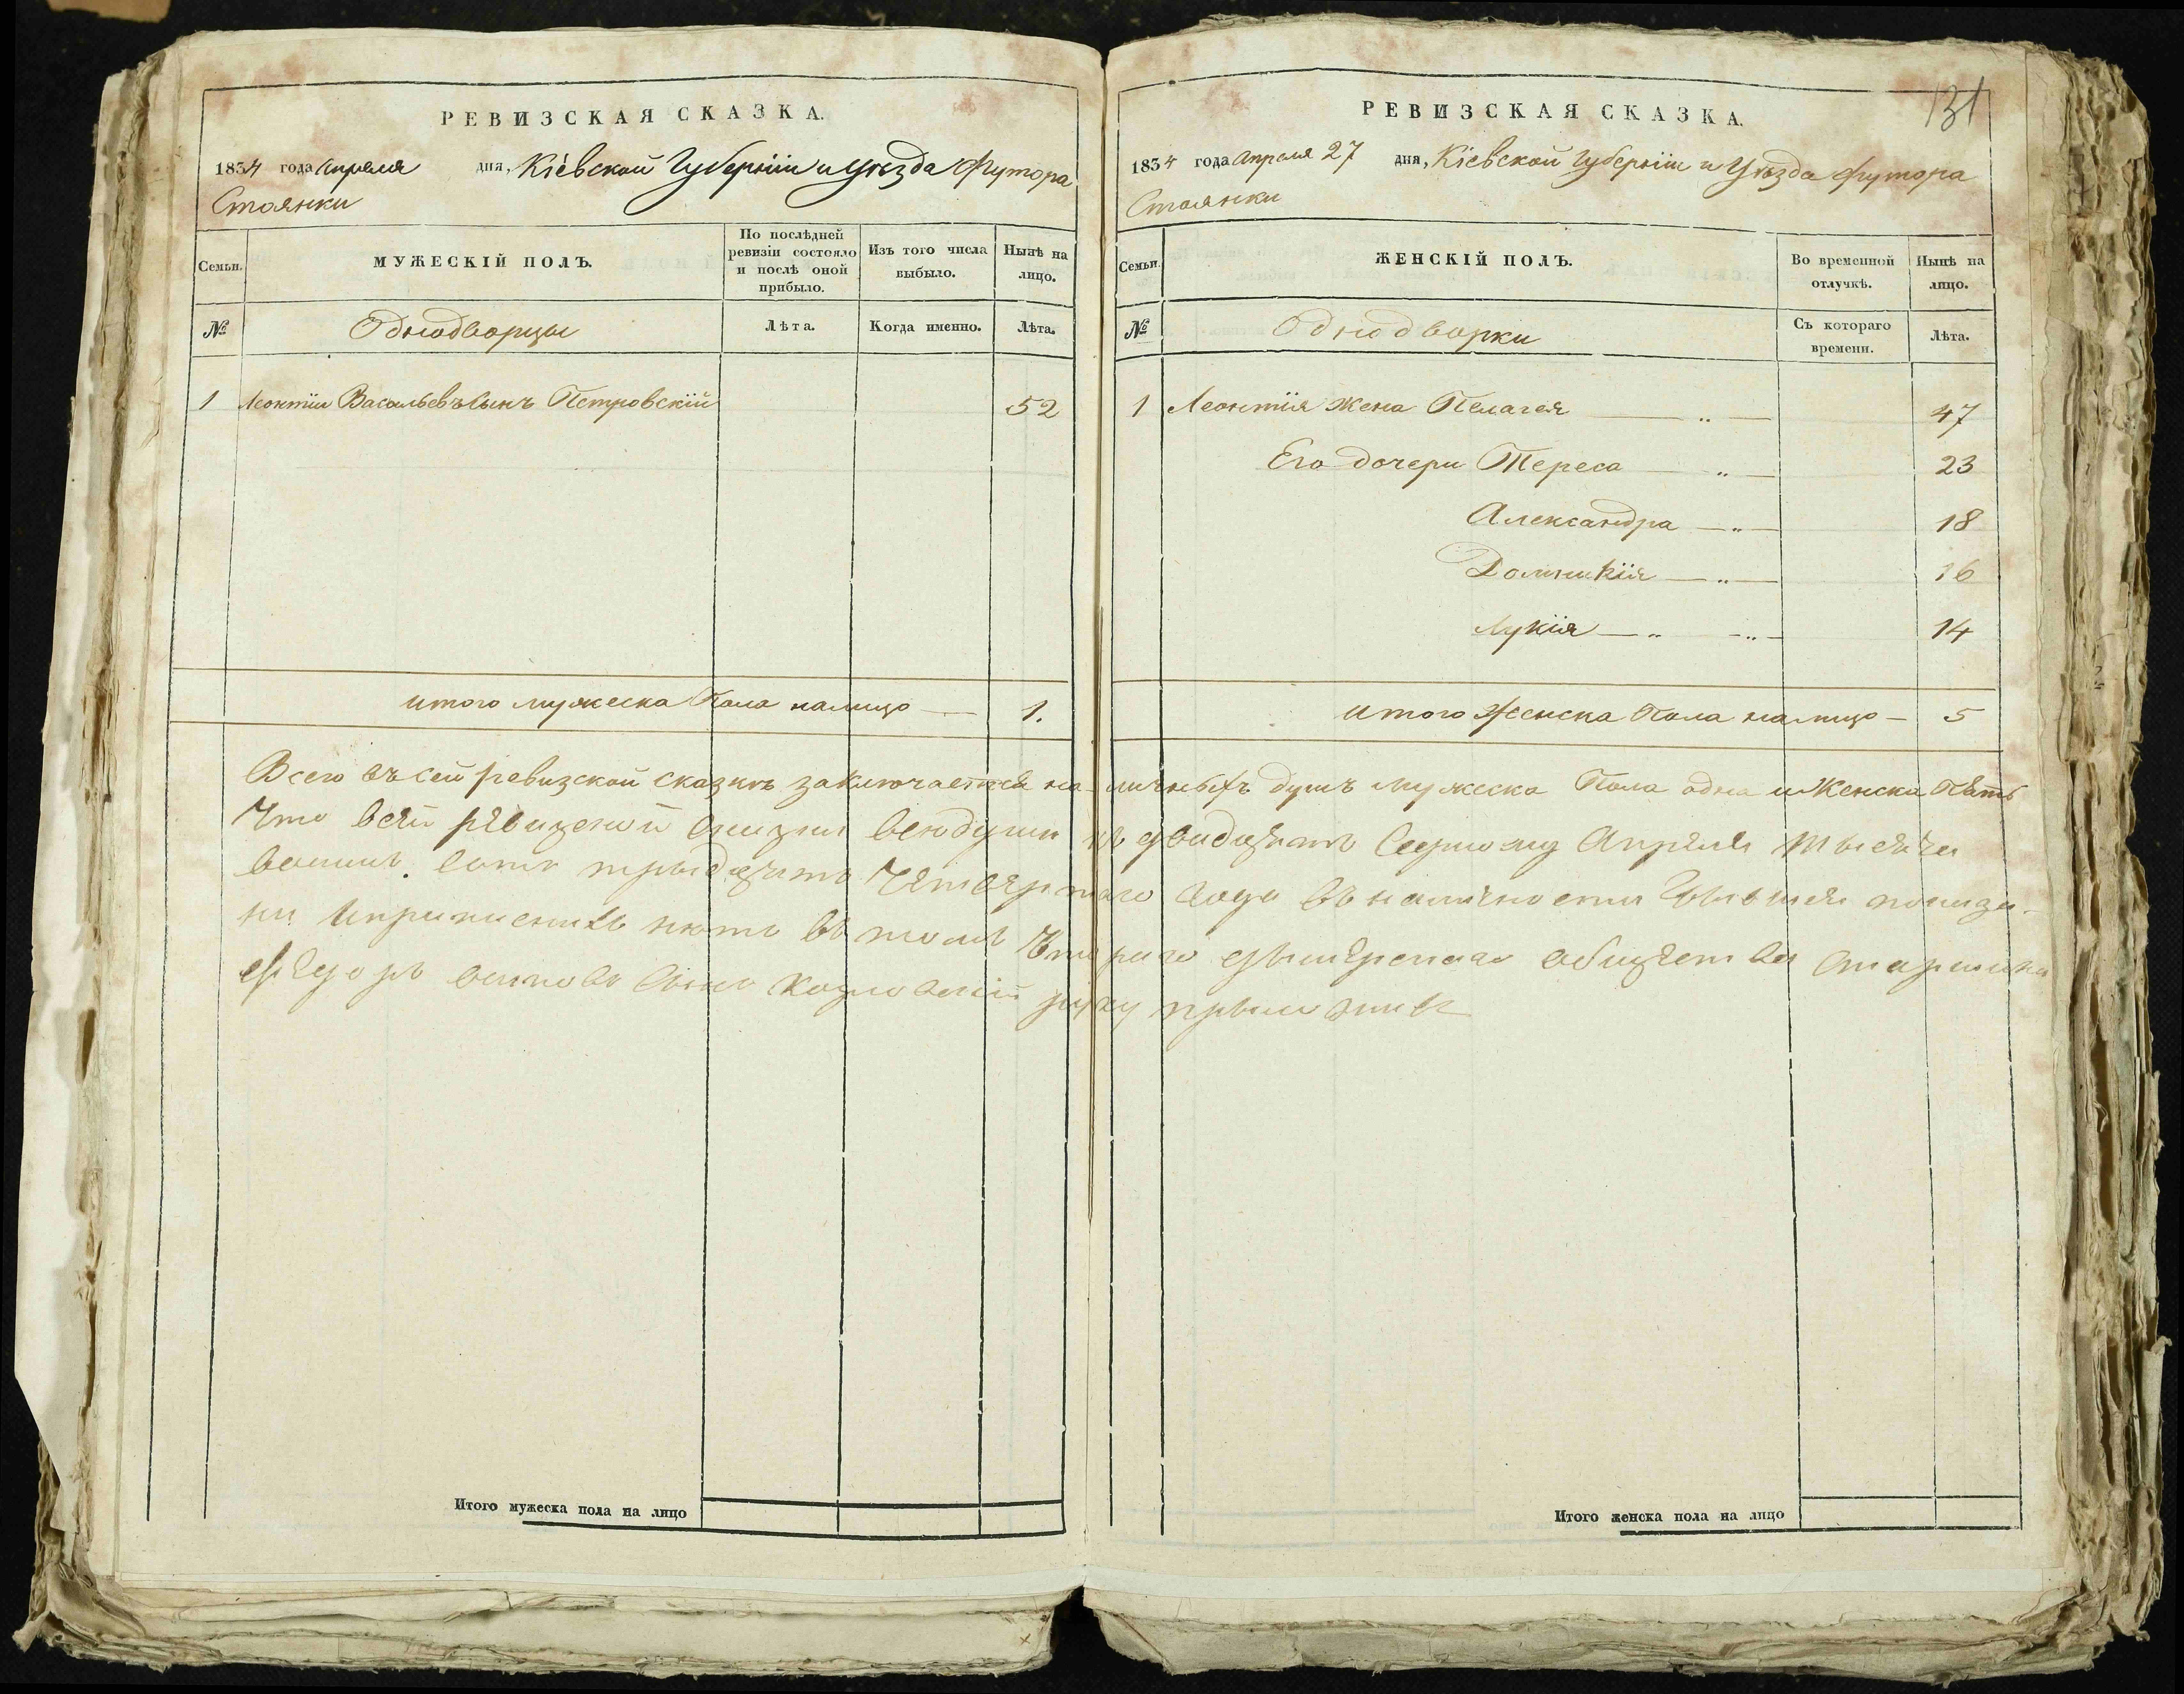 РЕВИЗСКАЯ СКАЗКА.
1834 года Апреля дня, Кіевской Губерніи и Уѣзда Футора
Стоянки
Семьи.
МУЖЕСКІЙ ПОЛЪ.
По послѣдней ревизіи состояло и послѣ оной прибыло.
Изъ того числа выбыло.
Нынѣ на лицо.
№
Однодворцы
Лѣта.
Когда именно.
Лѣта.
1 Леонтій Васильевъ Сынъ Петровскій 52
итого мужеска Пола налицо — 1.
РЕВИЗСКАЯ СКАЗКА.
131
1834 года Апреля 27 дня, Кіевской Губерніи и Уѣзда Футора
Стоянки
Семьи.
ЖЕНСКІЙ ПОЛЪ.
Во временной отлучкѣ.
Нынѣ на лицо.
№
Однодворки
Съ котораго времени.
Лѣта.
1 Леонтія жена Пелагея — „ — 47
Его дочери Тереса — „ — 23
Александра — „ — 18
Домникія — „ — 16
Лукія — „ — „ — 14
итого Женска Пола налицо — 5
Всего въ сей ревизской сказкѣ заключается наличныхъ душъ мужеска Пола одна и Женска Пять
Что всей рѣвизской къ двадцать Седмому Апрѣля Тысяча
трыдцать Чѣтвяртаго года въ наличности
нѣтъ въ томъ общѣства Старшина
Ѳѣдоръ сынъ Козловскій руку прыложилъ
Итого мужеска пола на лицо
Итого женска пола на лицо